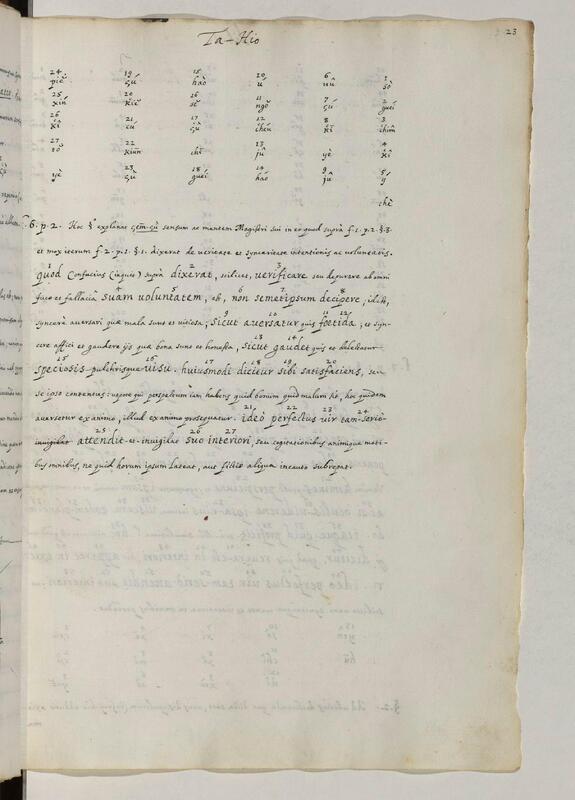 Ta-Hio
23
24 19 15 20 6 1
piĕ çú hào ú uû sò
25 20 16 11 7 2
xín kiĕ sĕ ngŏ çú guéi
26 21 17 12 8 3
kî çu çù cheú kî chîm
27 22 13 4
tŏ kiūn chī jû yè kî
23 18 14 9 5
yè çù guéi háo jû ý
chè
f. 6. p. 2. Hoc §° explanat çem-çù sensum ac mentem Magistri sui in eo quod suprà f. 1. p. 2. §. 3.
et mox iterum f. 2. p. 1. §. 1. dixerat de veritate et synceritate intentionis ac voluntatis.
1 2 3
quod Confucius (inquit) suprà dixerat, scilicet, verificare seu depurare ab omni
4 5 6 7 8
fuco et fallacia suam voluntatem, est, non semetipsum decipere, id est,
9 10 11 12
syncerè aversari quae mala sunt et vitiosa, sicut aversatur quis foetida, et syn-
13 14
cerè affici et gaudere ijs quae bona sunt et honesta, sicut gaudet quis et delectatur
15 16 17 18 19 20
speciosis pulchrisque visu. huiusmodi dicitur sibi satisfaciens, seu
se ipso contentus: utpote qui perspectum iam habens quid bonum quid malum sit, hoc quidem
21 22 23 24
aversetur ex animo, illud ex animo prosequatur. ideò perfectus vir tam seriò
25 26 27
invigilat attendit et invigilat suo interiori, seu cogitationibus animique moti-
bus omnibus, ne quid horum ipsum lateat, aut fictio aliqua incauto subrepat.